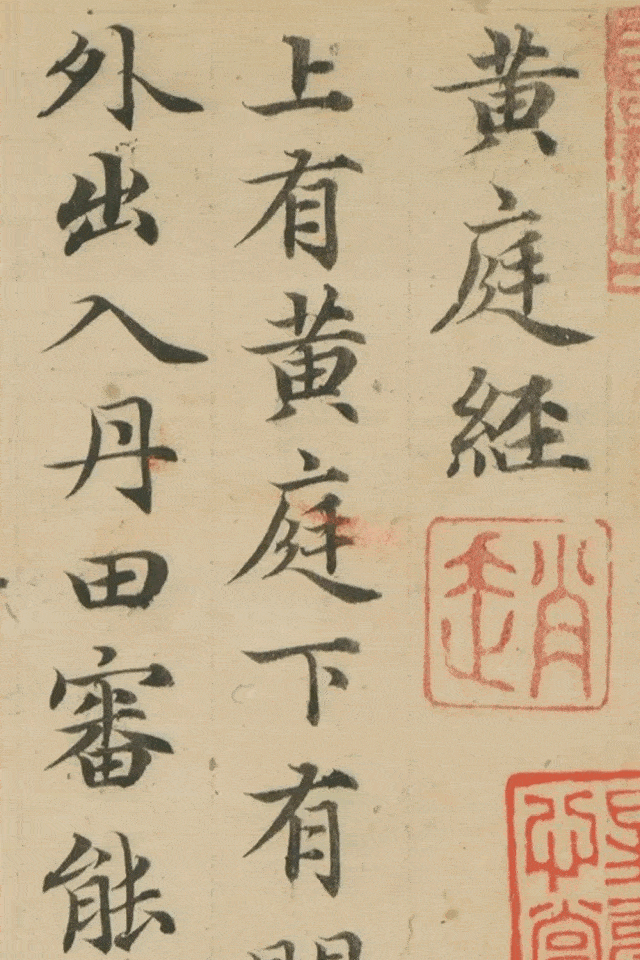 黄庭経
上有黄庭下有
外出入丹田審能
趙